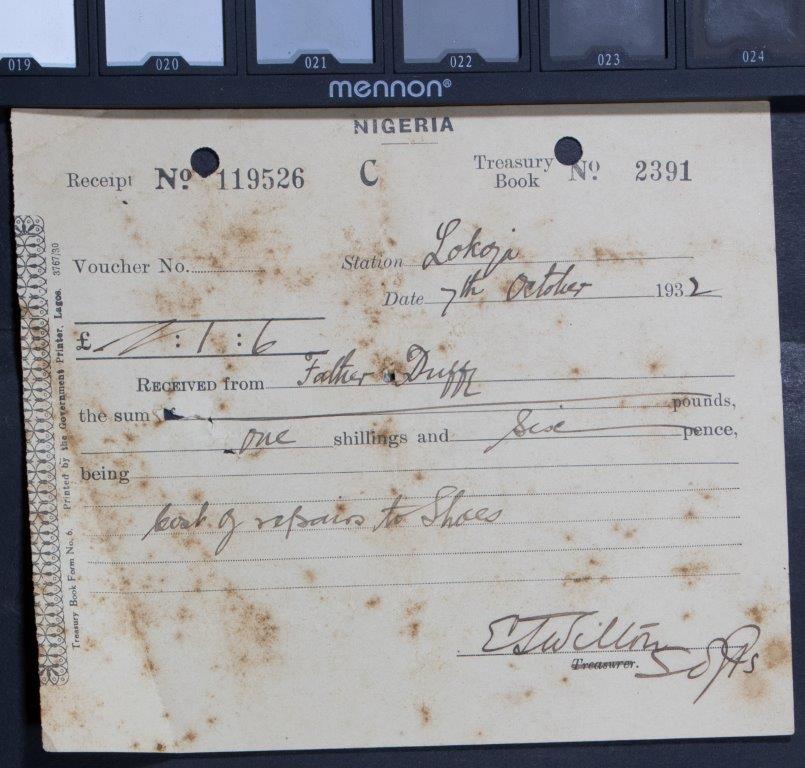 019 020 021 022 023 024
mennon®
NIGERIA
Receipt No. 119526 C Treasury Book No. 2391
Voucher No. Station Lokoja
Date 7th October 1932
£ - : 1 : 6
RECEIVED from Father Duffy
the sum of pounds,
one shillings and six pence,
being
cost of repairs to Shoes
Treasurer.
Treasury Book Form No. 6. Printed by the Government Printer, Lagos. 3767/30